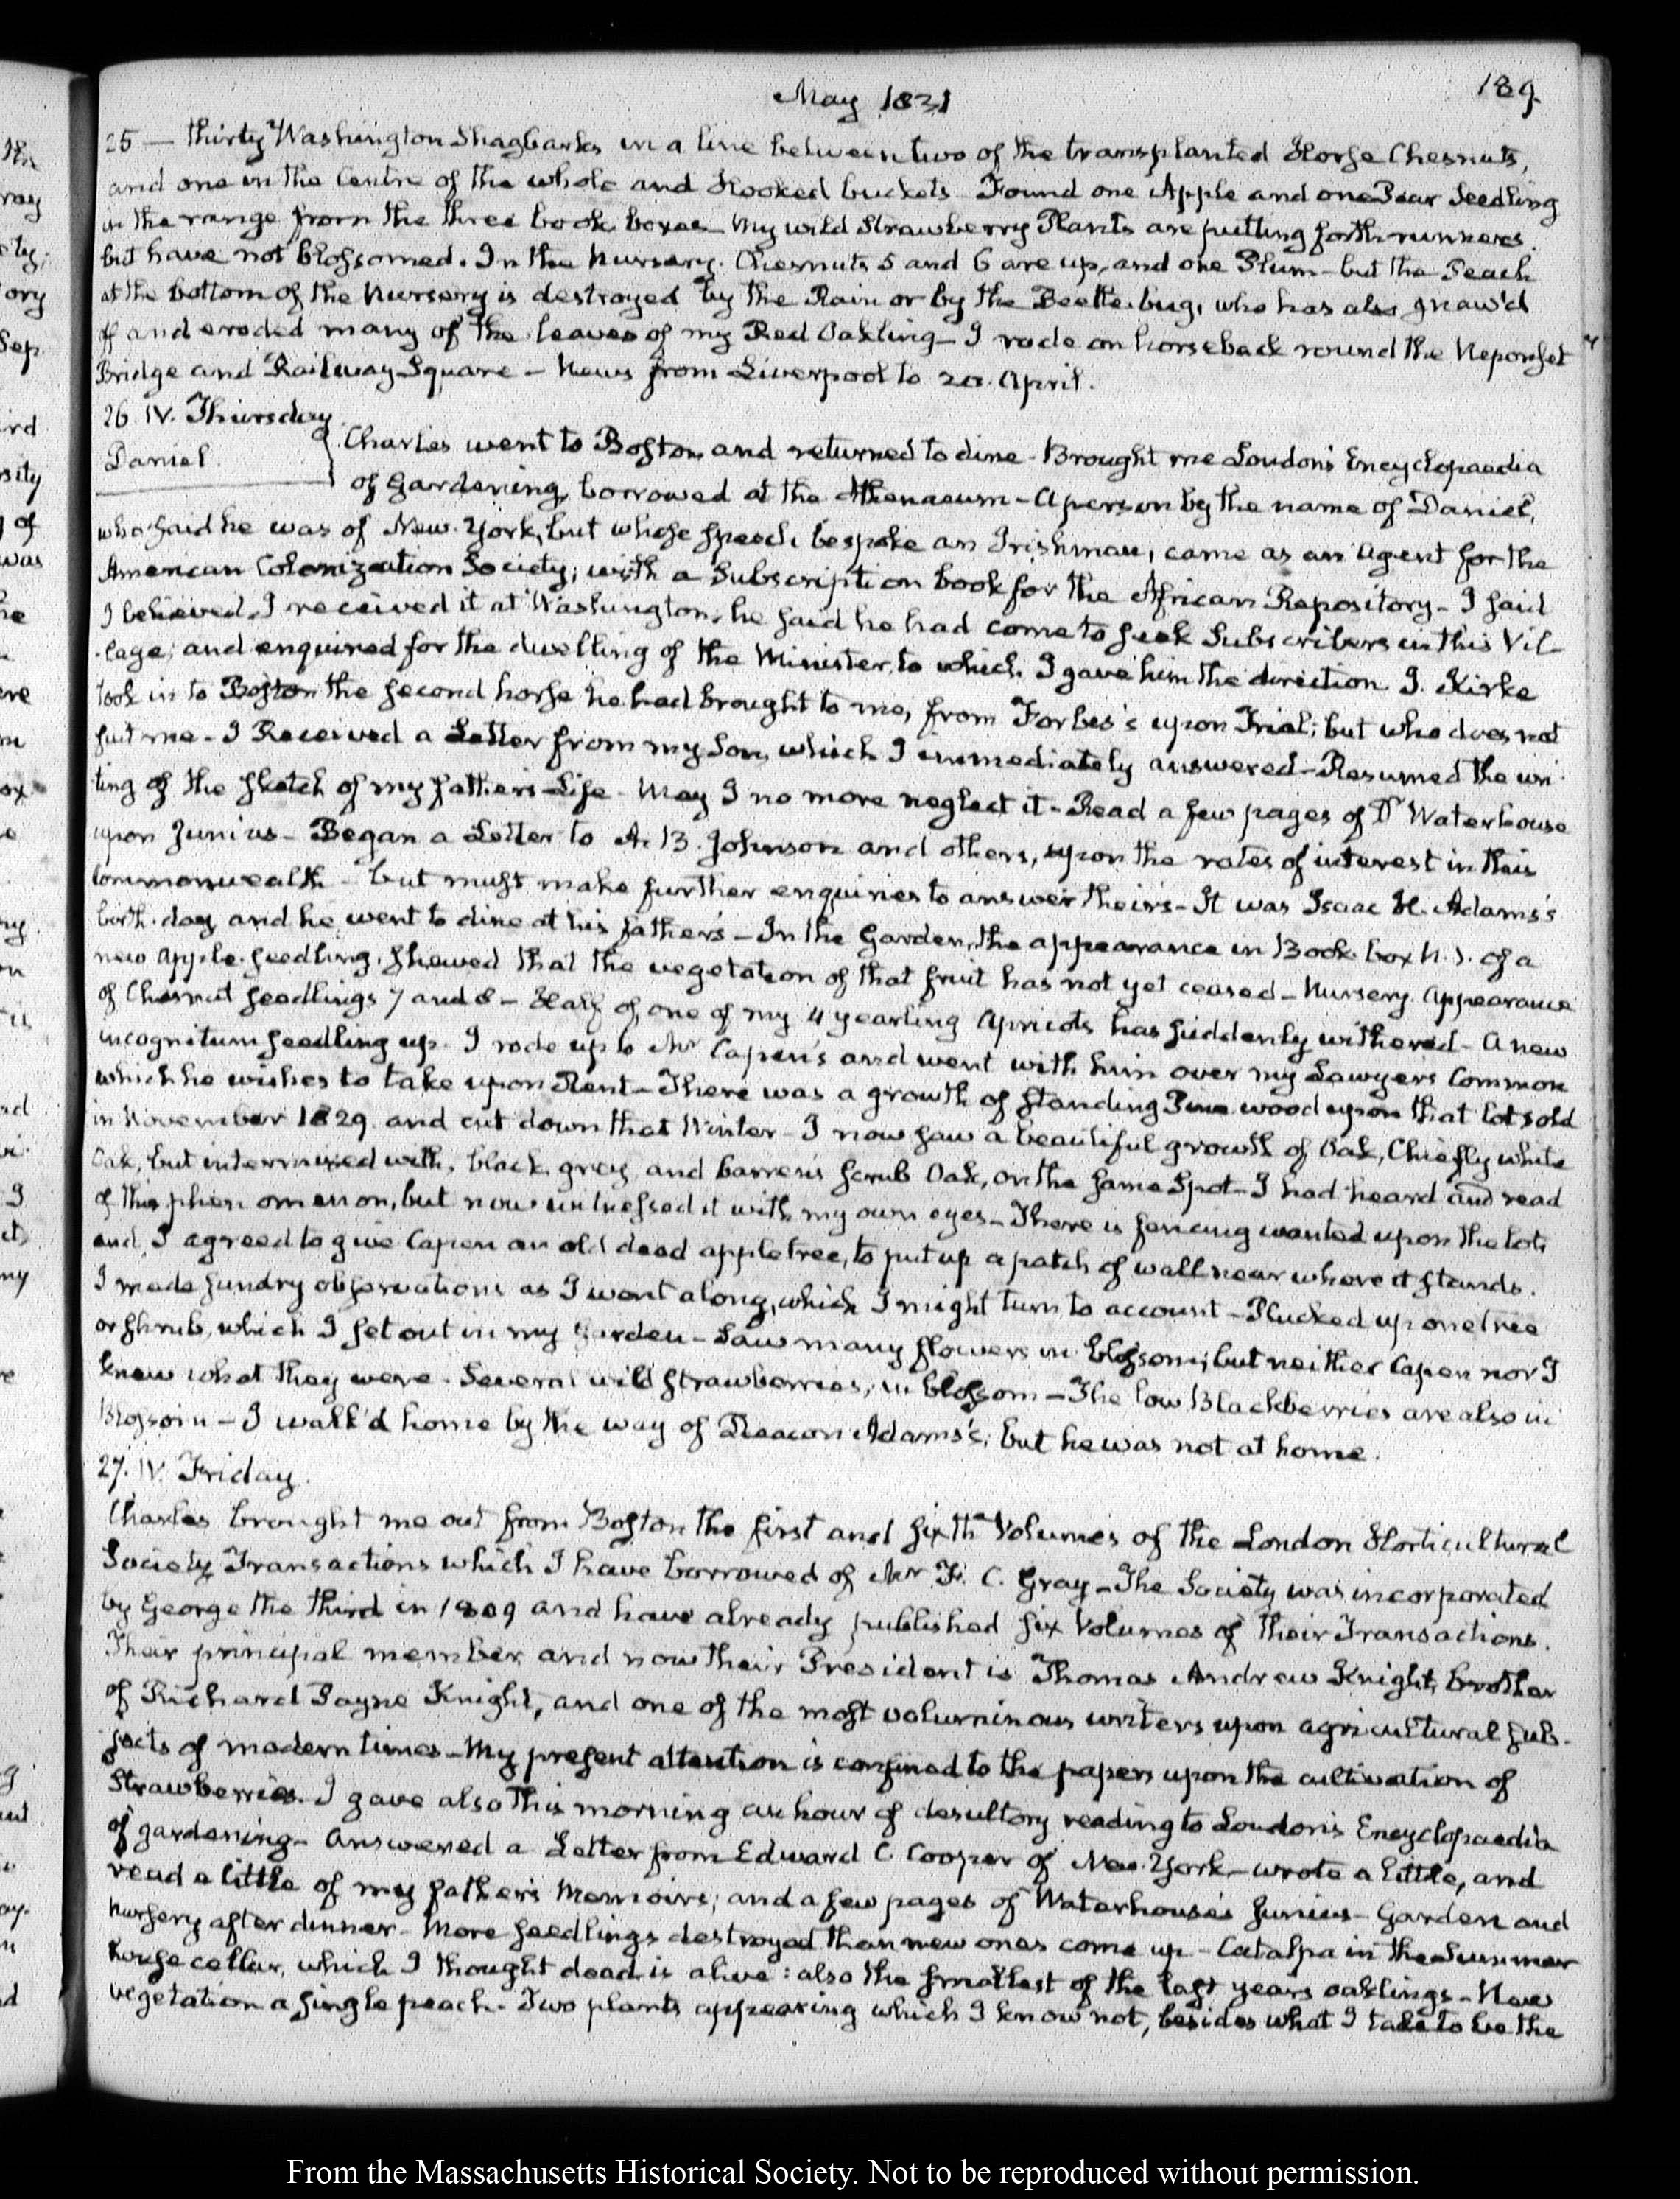 189.
May 1831
25 — thirty Washington Shagbarks in a line between two of the transplanted Horse Chesnuts,
and one in the Centre of the whole and Hooked buckets — Found one Apple and one Pear Seedling
in the range from the three book boxes — My wild Strawberry Plants are putting forth runners.
but have not blossomed. In the Nursery. Chesnuts 5 and 6 are up, and one Plum — but the Peach
at the bottom of the Nursery is destroyed by the Rain or by the Beetle bug, who has also gnaw'd
off and eroded many of the leaves of my Red Oakling — I rode on horseback round the Neponset
Bridge and Railway Square — News from Liverpool to 20. April.
26. IV. Thursday.
Daniel.
Charles went to Boston and returned to dine. Brought me Loudon's Encyclopaedia
of Gardening, borrowed at the Athenaeum — A person by the name of Daniel,
who said he was of New-York, but whose speech bespoke an Irishman, came as an Agent for the
American Colonization Society; with a Subscription book for the African Repository — I said
I believed I received it at Washington; he said he had come to seek Subscribers in this Vil-
lage; and enquired for the dwelling of the Minister, to which I gave him the direction. J. Kirke
took in to Boston the second horse he had brought to me, from Forbes's upon Trial; but who does not
suit me — I Received a Letter from my Son, which I immediately answered — Resumed the wri-
ting of the sketch of my father's Life — May I no more neglect it — Read a few pages of Dr Waterhouse
upon Junius — Began a Letter to A. B. Johnson and others, upon the rates of interest in this
Commonwealth — but must make further enquiries to answer theirs — It was Isaac H. Adams's
birth-day and he went to dine at his father's — In the Garden, the appearance in Book-box N. 1. of a
new apple-seedling, shewed that the vegetation of that fruit has not yet ceased — Nursery. Appearance
of Chesnut seedlings 7 and 8 — Half of one of my 4 yearling Apricots has suddenly withered — A new
incognitum seedling up. I rode up to Mr Capen's and went with him over my Lawyers Common
which he wishes to take upon Rent — There was a growth of standing Pine wood upon that lot sold
in November 1829. and cut down that Winter — I now saw a beautiful growth of Oak, Chiefly white
Oak, but intermixed with, black, grey, and barrens scrub Oak, on the same Spot — I had heard and read
of this phenomenon, but now witnessed it with my own eyes — There is fencing wanted upon the lot;
and I agreed to give Capen an old dead apple tree, to put up a patch of wall near where it stands.
I made sundry observations as I went along, which I might turn to account — Plucked up one tree
or shrub, which I set out in my Garden — Saw many flowers in blossom; but neither Capen nor I
knew what they were. Several wild strawberries, in blossom — The low Blackberries are also in
Blossom — I walk'd home by the way of Deacon Adams's; but he was not at home.
27. IV. Friday.
Charles brought me out from Boston the first and sixth Volumes of the London Horticultural
Society Transactions which I have borrowed of Mr F. C. Gray — The Society was incorporated
by George the third in 1809 and have already published six Volumes of their Transactions.
Their principal member, and now their President is Thomas Andrew Knight, brother
of Richard Payne Knight, and one of the most voluminous writers upon agricultural sub-
jects of modern times — My present attention is confined to the papers upon the cultivation of
Strawberries. I gave also this morning an hour of desultory reading to Loudon's Encyclopaedia
of gardening — Answered a Letter from Edward C. Cooper of New-York — wrote a little, and
read a little of my father's Memoirs; and a few pages of Waterhouse's Junius — Garden and
Nursery after dinner — More seedlings destroyed than new ones come up — Catalpa in the Summer
house cellar, which I thought dead is alive: also the smallest of the last years oaklings — New
vegetation a single peach. Two plants appearing which I know not, besides what I take to be the
From the Massachusetts Historical Society. Not to be reproduced without permission.